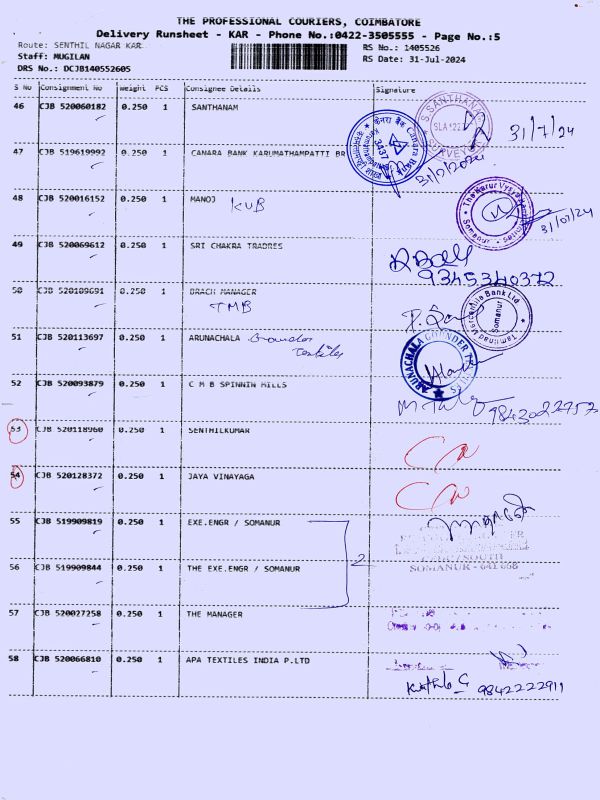 THE PROFESSIONAL COURIERS, COIMBATORE
Delivery Runsheet - KAR - Phone No.:0422-3505555 - Page No.:5
Route: SENTHIL NAGAR KAR
RS No.: 1405526
Staff: MUGILAN
RS Date: 31-Jul-2024
DRS No.: DCJB140552605
S No Consignment No Weight PCS Consignee Details Signature
46 CJB 520060182 0.250 1 SANTHANAM
31/7/24
47 CJB 519619992 0.250 1 CANARA BANK KARUMATHAMPATTI BR
Canara Bank
3437
31/7/2024
48 CJB 520016152 0.250 1 MANOJ KVB
The Karur Vysya Bank
Somanur
31/07/24
49 CJB 520069612 0.250 1 SRI CHAKRA TRADRES
9345340372
50 CJB 520109691 0.250 1 BRACH MANAGER
TMB
Tamilnad Mercantile Bank Ltd
Somanur
51 CJB 520113697 0.250 1 ARUNACHALA Gounder
Textiles
ARUNACHALA GOUNDER
52 CJB 520093879 0.250 1 C M B SPINNIN MILLS
9843022757
53 CJB 520118960 0.250 1 SENTHILKUMAR
54 CJB 520128372 0.250 1 JAYA VINAYAGA
55 CJB 519909819 0.250 1 EXE.ENGR / SOMANUR
2
SOMANUR - 641 668
56 CJB 519909844 0.250 1 THE EXE.ENGR / SOMANUR
57 CJB 520027258 0.250 1 THE MANAGER
58 CJB 520066810 0.250 1 APA TEXTILES INDIA P.LTD
9842222911